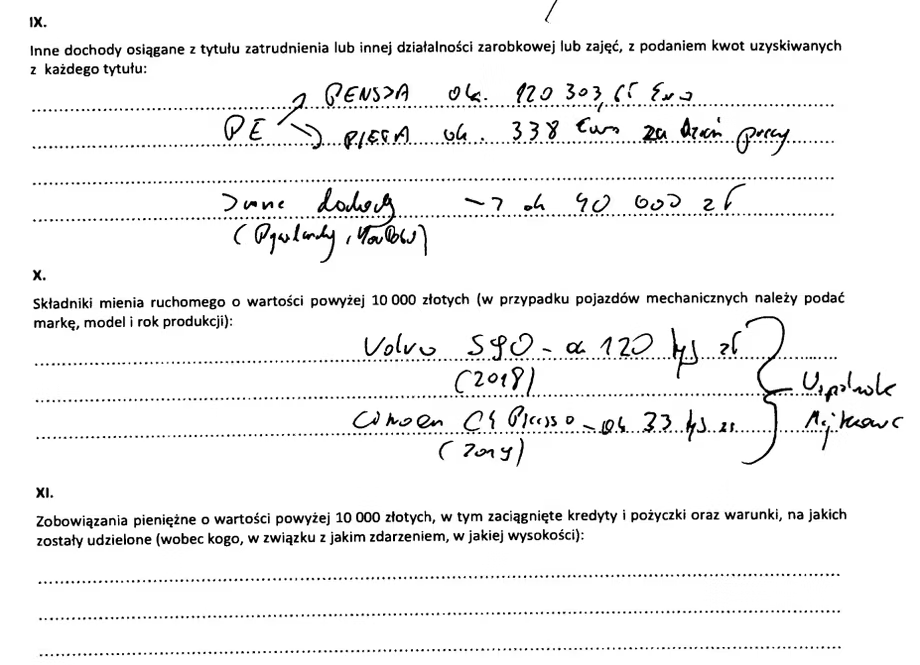 IX.
Inne dochody osiągane z tytułu zatrudnienia lub innej działalności zarobkowej lub zajęć, z podaniem kwot uzyskiwanych
z każdego tytułu:
PENSJA ok. 120 303,65 Euro
PE
DIETA ok. 338 Euro za dzień pracy
Inne dochody -> ok 40 000 zł
X.
Składniki mienia ruchomego o wartości powyżej 10 000 złotych (w przypadku pojazdów mechanicznych należy podać
markę, model i rok produkcji):
Volvo S90 - ok 120 tys zł
(2018)
Wspólność
Citroen C4 Picasso - ok 33 tys zł
Majątkowa
XI.
Zobowiązania pieniężne o wartości powyżej 10 000 złotych, w tym zaciągnięte kredyty i pożyczki oraz warunki, na jakich
zostały udzielone (wobec kogo, w związku z jakim zdarzeniem, w jakiej wysokości):